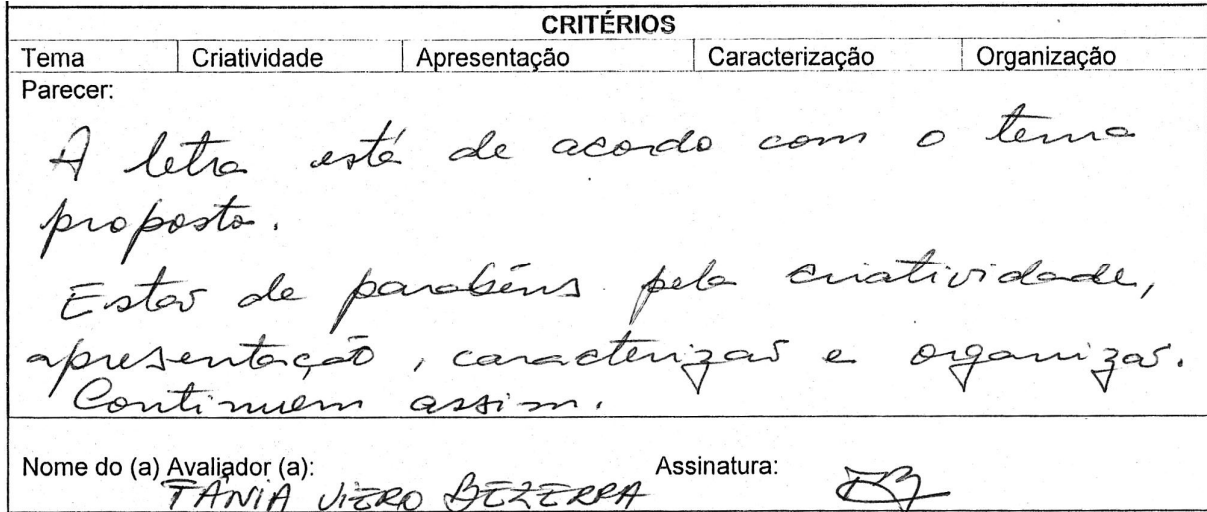 CRITÉRIOS
Tema Criatividade Apresentação Caracterização Organização
Parecer:
A letra está de acordo com o tema
proposto.
Estão de parabéns pela criatividade,
apresentação, caracterização e organização.
Continuem assim.
Nome do (a) Avaliador (a): Assinatura:
TÂNIA VIERO BEZERRA